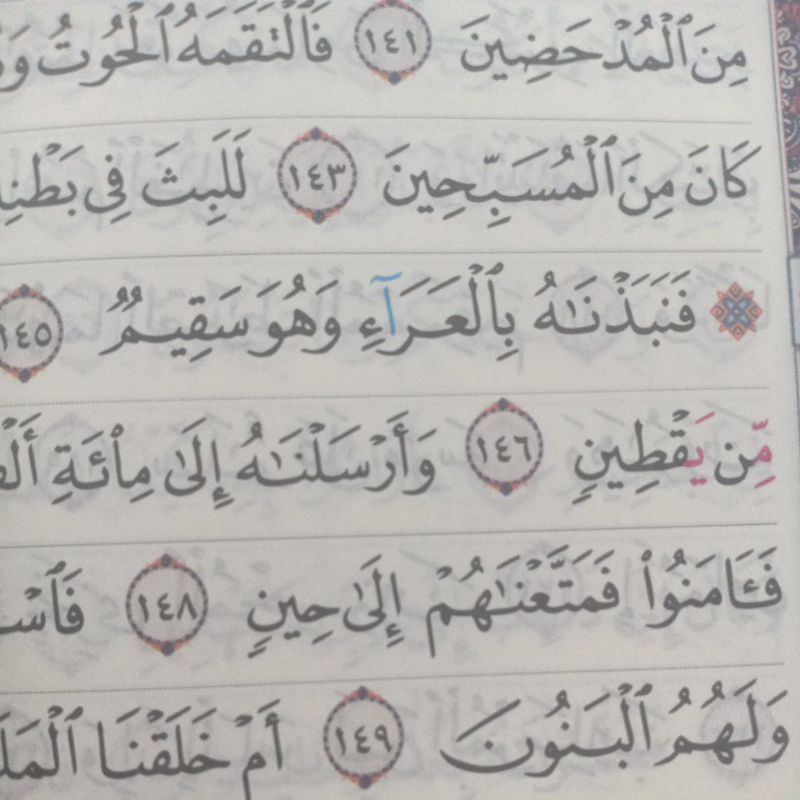 مِنَ ٱلْمُدْحَضِينَ ١٤١ فَٱلْتَقَمَهُ ٱلْحُوتُ
كَانَ مِنَ ٱلْمُسَبِّحِينَ ١٤٣ لَلَبِثَ فِى
فَنَبَذْنَٰهُ بِٱلْعَرَآءِ وَهُوَ سَقِيمٌ ١٤٥
مِّن يَقْطِينٍ ١٤٦ وَأَرْسَلْنَٰهُ إِلَىٰ مِا۟ئَةِ
فَـَٔامَنُوا۟ فَمَتَّعْنَٰهُمْ إِلَىٰ حِينٍ ١٤٨
وَلَهُمُ ٱلْبَنُونَ ١٤٩ أَمْ خَلَقْنَا